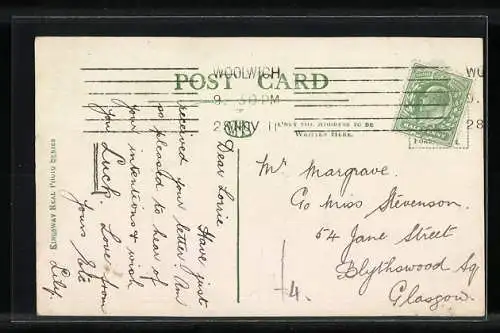 WOOLWICH
POST CARD
9. 30 PM
28 NOV 11
ONLY THE ADDRESS TO BE
WRITTEN HERE.
KINGSWAY REAL PHOTO SERIES
Dear Lorrie
Have just
received your letter. Am
so pleased to hear of
your intentions & wish
you Luck. Love from
yours Etc
Lily.
Mr Margrave.
Co Miss Stevenson.
54 Jane Street
Blythswood Sq
Glasgow.
4.
WO
28